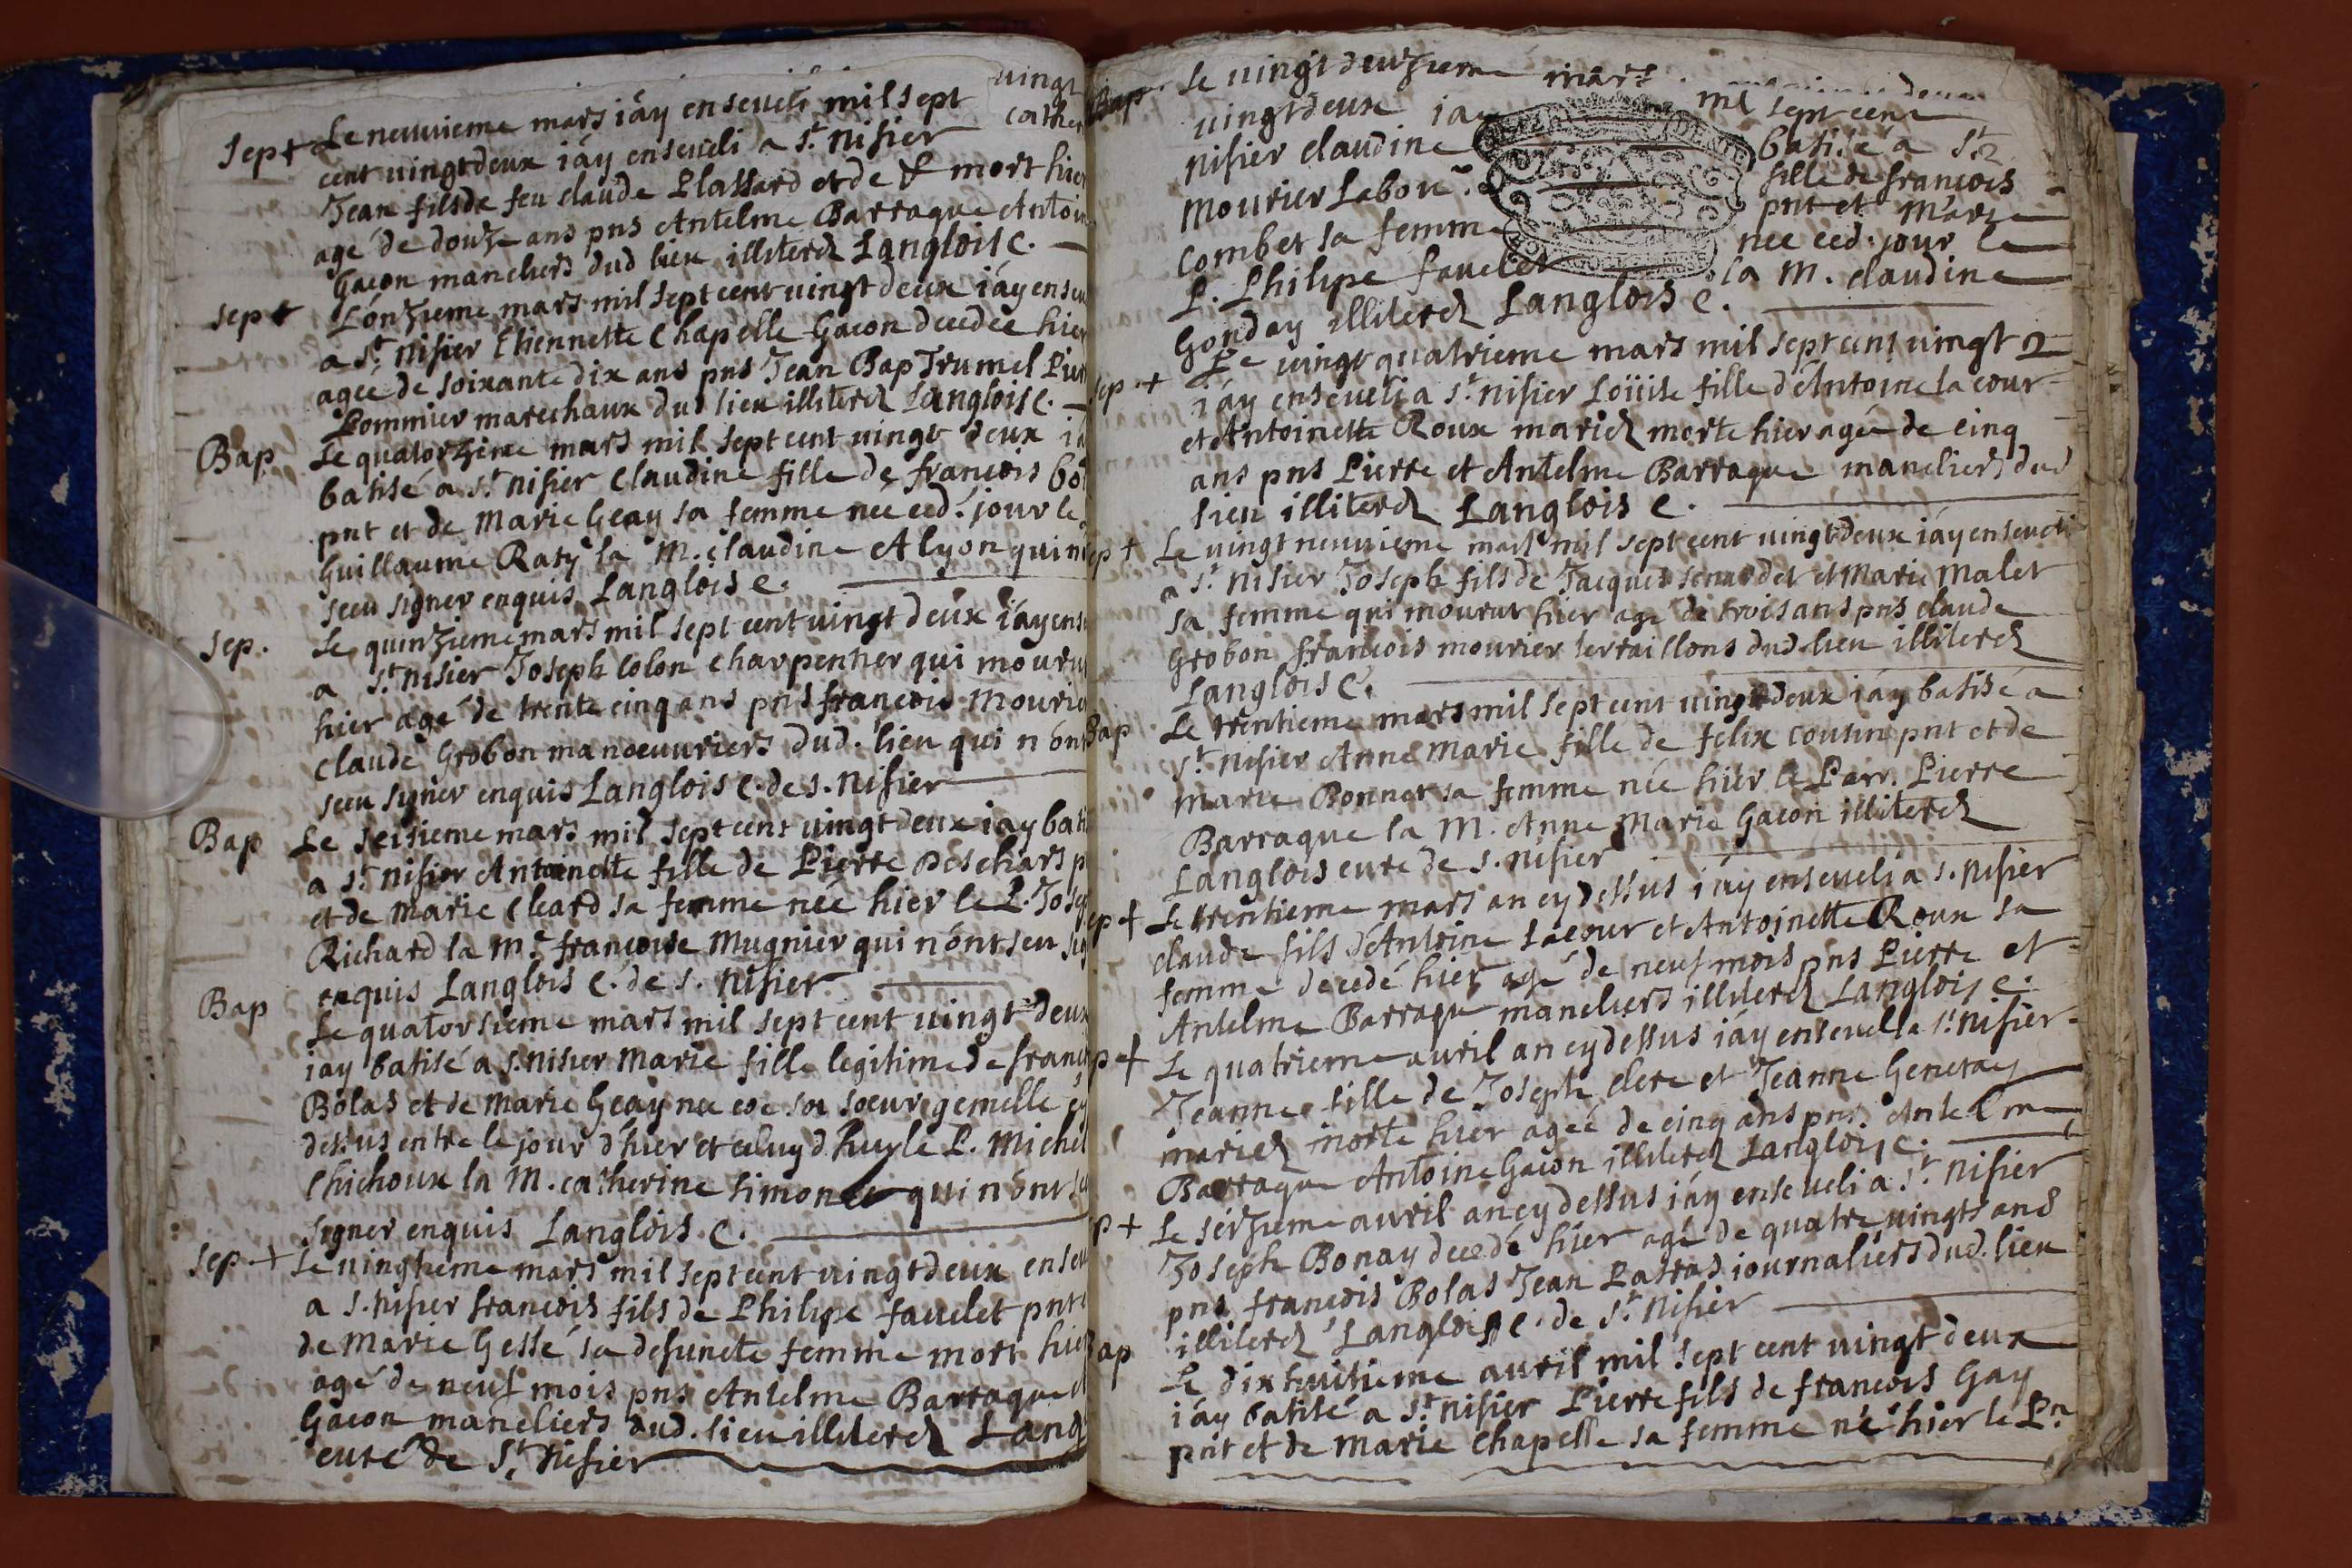 vingt
cather
Sep + Le neuvieme mars iáy enseveli mil sept
cent vingt deux iáy enseveli a St. nisier
Jean fils de feu claude Plassard et de & mort hier
agé de douze ans pns Antelme Barraque Antoin
Gacon mancliers dud lieu illiterez Langlois C.
sep + L'onzieme mars mil sept cent vingt deux iáy ensev
a St. nisier Etiennette Chapelle Gacon decedée hier
ageé de soixante dix ans pns Jean Bap Trumel Pier
Pommier marechaux dud lieu illiterez Langlois C.
Bap Le quatorzieme mars mil sept cent vingt deux iá
batisé a St. nisier Claudine fille de francois bol
pnt et de Marie Geay sa femme neé ced. jour le
Guillaume Raty la M. claudine Alyon qui n
sceu signer enquis Langlois C.
Sep. Le quinzieme mars mil sept cent vingt deux iáy ense
a St. nisier Joseph Colon Charpentier qui mouru
hier agé de trente cinq ans pns francois Mourie
claude Grobon manoeuvriers dud. lieu qui n'ont
sceu signer enquis Langlois C. de S. Nisier
Bap Le seisieme mars mil sept cent vingt deux iay bati
a St. nisier Antoinette fille de Pierre Deschars p
et de Marie Cleard sa femme neé hier le P. Jose
Richard la Me. francoise Mugnier qui n'ont sceu sig
enquis Langlois C. de S. Nisier
Bap Le quatorsieme mars mil sept cent vingt deux
iay batisé a S. nisier Marie fille legitime de franc
Bolas et de Marie Geay neé sa soeur gemelle cy
dessus entre le jour d'hier et celuy d'huy le P. Michel
Chichoux la M. catherine Simon qui n'ont sc
signer enquis Langlois C.
Sep. + Le vingtieme mars mil sept cent vingt deux ensev
a S. nisier francois fils de Philipe favelet pnt e
de Marie Gessé sa defuncte femme mort hier
agé de neuf mois pns Antelme Barraque A
Gacon mancliers dud. lieu illiterez Lang
curé de St. Nisier
Bap. Le vingt deuzieme mars mil sept cent
vingt deux iay batisé a St.
nisier claudine fille de francois
Mourier Labour. pnt et Marie
Combet sa femme neé ced. jour le
P. Philipe favelet la M. claudine
Gonday illiterez Langlois C.
sep. + Le vingt quatrieme mars mil sept cent vingt 2
iáy enseveli a St. nisier Loüise fille d'Antoine la cour
et Antoinette Roux mariez morte hier ageé de cinq
ans pns Pierre et Antelme Barraque mancliers dud
lieu illiterez Langlois C.
ep + Le vingt neuvieme mars mil sept cent vingt deux iáy enseveli
a St. Nisier Joseph fils de Jacques senardet et Marie Malet
sa femme qui mourut hier agé de trois ans pns claude
Grobon francois mourier terraillons dud. lieu illiterez
Langlois C.
Bap Le trentieme mars mil sept cent vingt deux iáy batisé a
St. Nisier Anne Marie fille de felix coutin pnt et de
Marie Bonnet sa femme née hier le Parr. Pierre
Barraque la M. Anne Marie Gacon illiterez
Langlois curé de S. Nisier
ep + Le trentieme mars an cy dessus iáy enseveli a S. Nisier
claude fils d'Antoine Lacour et Antoinette Roux sa
femme decedé hier agé de neuf mois pns Pierre et
Antelme Barraque mancliers illiterez Langlois C.
p + Le quatrieme avril an cy dessus iáy enseveli a St. Nisier
Jeanne fille de Joseph clerc et Jeanne Generay
mariez morte hier ageé de cinq ans pns Antelme
Barraque Antoine Gacon illiterez Langlois C.
p + Le seizieme avril an cy dessus iáy enseveli a St. Nisier
Joseph Bonay decedé hier agé de quatre vingts ans
pns francois Bolas Jean Patras journaliers dud. lieu
illiterez Langlois C. de St. Nisier
Bap Le dixhuitieme avril mil sept cent vingt deux
iáy batisé a St. nisier Pierre fils de francois Gay
pnt et de Marie Chapelle sa femme né hier le Pn.